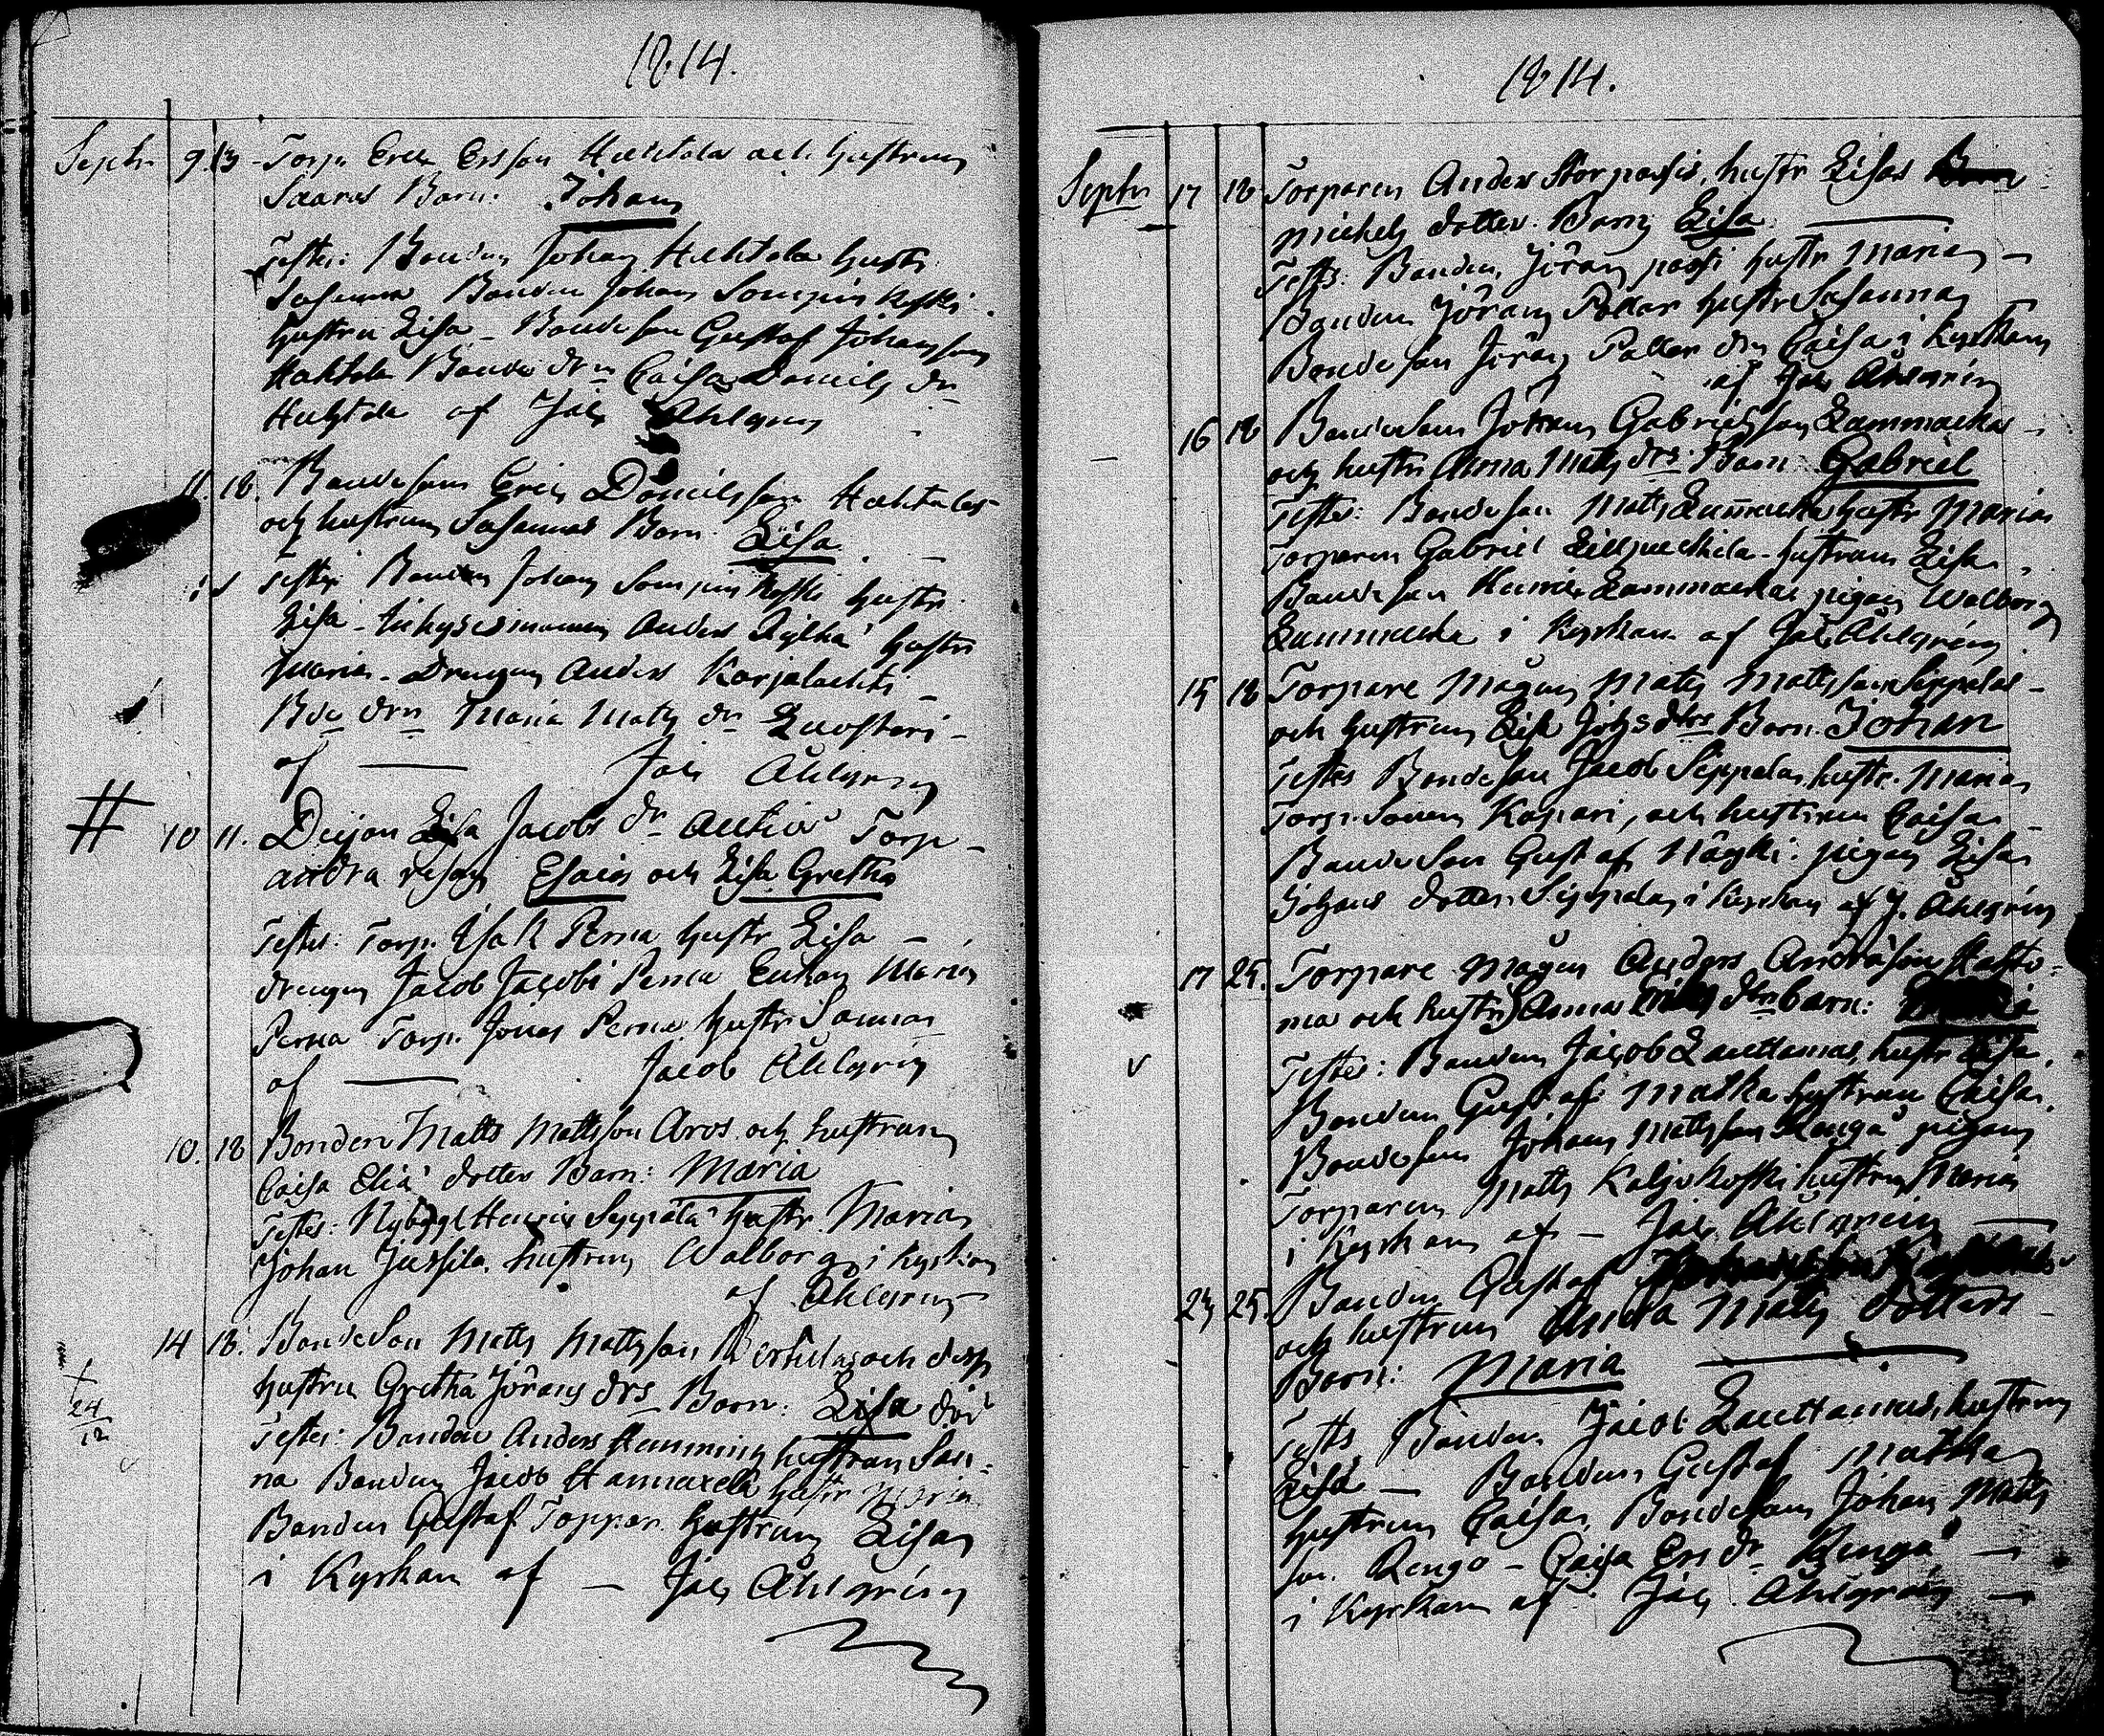 1814.
Septr 9. 13 Torp. Eric Ersson Huhtala och hustrun
Saaras Barn: Johan
Testes: Bonden Johan Huhtala hustr.
Susanna Bonden Johan Sompin koski
hustru Lisa – Bondeson Gustaf Johansson
Huhtala Bonde drn Caisa Daniels dr
Huhtala af Jac Ahlgren
11. 18. Bondeson Eric Danielsson Huhtalas
och hustrun Susannas Barn Lisa
Testes Bonden Johan Sompin koski hustr
Lisa Anders hustr
Maria. Drengen Anders Karjalachti
Bde drn Maria Mats dr Luostari
af Jac Ahlgren
# 10 11. Pigan Lisa Jacobs dr Torp
andra resan Esaias och Lisa Gretha
Testes: Torp. Isak Perna hustr Lisa
drengen Jacob Jacobs Perna Enkan Maria
Perna Torp. Jonas Perna hustr Sannas
af Jacob Ahlgren
10. 18 Bonden Matts Mattsson Aros och hustrun
Caisa Elia dotter Barn: Maria
Testes: Nybygg Henric Seppälä hustr. Maria
Johan Jussila hustrun Walborg i kyrkan
af Ahlgren
14 18. Bondeson Matts Mattsson Bertulas och dess
hustru Gretha Jörans drs Barn: Lisa död
24
12
Testes: Bonden Anders Hemming hustrun San-
na Bonden Jacob Hannuxela hustr Maria
Bonden Gustaf Toppar hustrun Lisa
i Kyrkan af – Jac Ahlgren
1814.
Septr 17 18 Torparen Anders Storpassis, hustr Lisas
Michels dotter. Barn Lisa
Testes: Bonden Jöran passi hustr Maria
Bonden Jöran Pallar hustr Susanna
Bondeson Jöran Pallar drn Caisa i Kyrkan
af Jac Ahlgren
16 18 Bondeson Johan Gabrielsson Lammackas
och hustr Anna Mats drs Barn Gabriel
Testes: Bondeson Matts Lammacka hustr Maria
Torparen Gabriel hustrun Lisa
Bondeson Henric Lammacka pigan Walborg
Lammacka i Kyrkan af Jac Ahlgren
15 18 Torpare Mågen Mats Mattsson Seppelas
och hustrun Lisa Johs dtrs Barn. Johan
Testes Bondeson Jacob Seppela hustr. Maria
Torp. Sonen Kapari, och hustrun Caisa
Bondeson Gustaf Näyki: pigan Lisa
Johans dotter Seppela i Kyrkan af J. Ahlgren
17 25. Torpare Mågen Anders Andersson
ma och hustr Anna barn:
Testes: Bonden Jacob Lauttamus, hustr Lisa.
Bonden Gustaf Matka hustrun Caisa.
Bondeson Johan Mattsson Rengo pigan
Torparen Matts Kaljukoski hustrun Maria
i Kyrkan af – Jac Ahlgren
23 25. Bonden Gustaf
och hustrun Anna Mats dotters
Barn: Maria
Testes Bonden Jacob Lauttamus, hustrun
Lisa – Bonden Gustaf Matka
hustrun Caisa, Bondeson Johan Matts
son Rengo – Caisa Ers dr Rengo
i Kyrkan af Jac Ahlgren